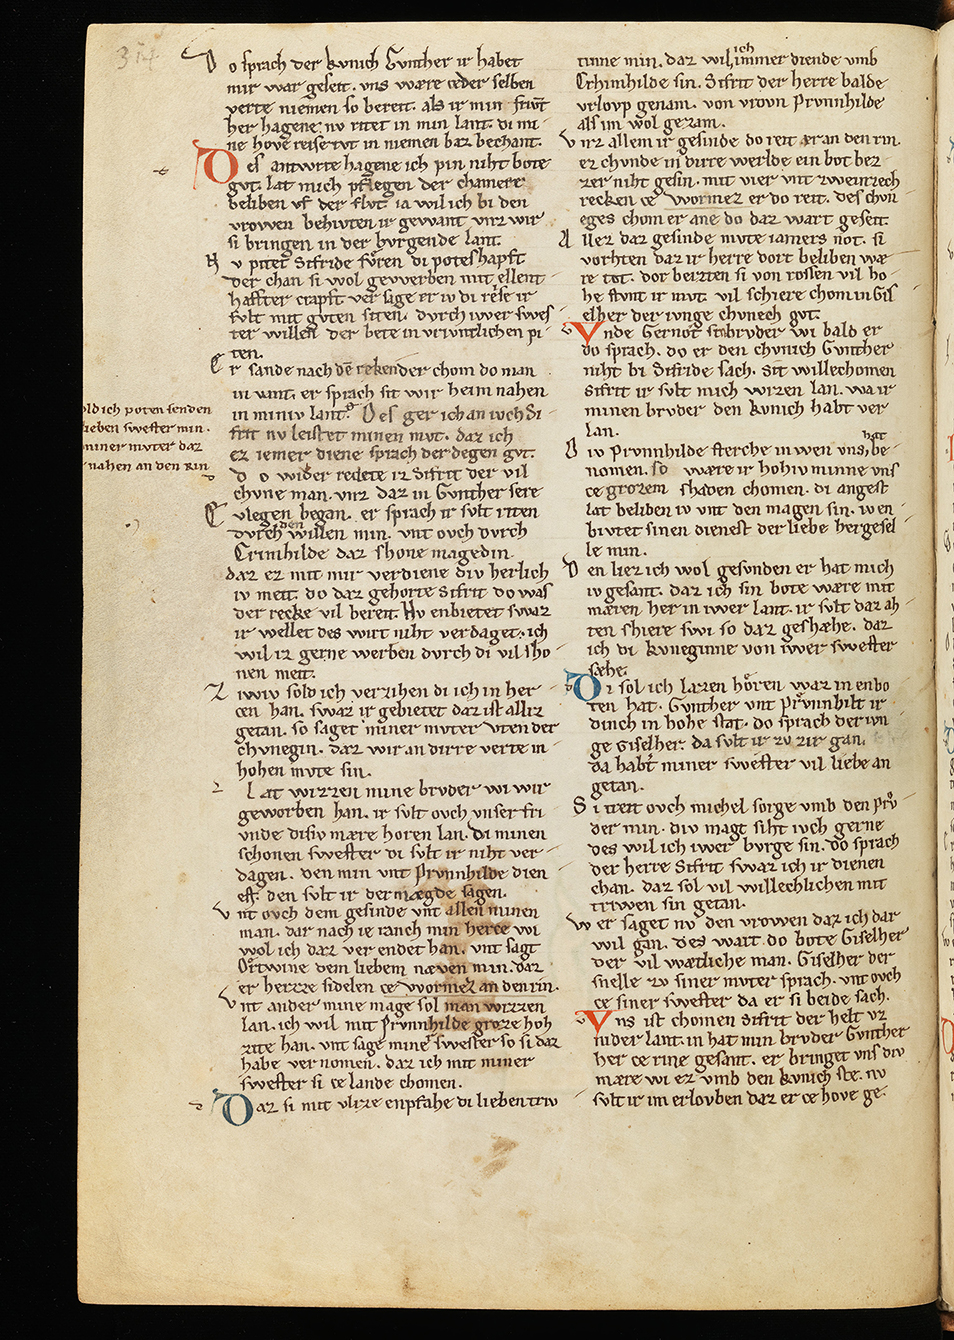 314
Do sprach der kvnich Gvnther ir habet
mir war geseit. vns wære ceder selben
verte niemen so bereit. als ir min frivt
her hagene; nv ritet in min lant. di mi
ne hove reise tvt in niemen baz bechant.
Des antwrte hagene ich pin niht bote
gvt. lat mich pflegen der chamere
beliben vf der flvt ia wil ich bi den
vrowen behvten ir gewant vnz wir
si bringen in der bvrgende lant.
Nv pitet Sifride fvͦren di poteshapft
der chan si wol gewerben mit ellent
haffter crapft ver sage er iv di reise ir
svlt mit gvten siten. dvrch iwer swes
ter willen der bete in vrivntlichen pi
ten.
Er sande nach dē rekender chom do man
in vant. er sprach sit wir heim nahen
in miniv lant.
old ich poten senden
lieben swester min.
miner mvter daz
nahen an den Rin
Des ger ich an ivch Si
frit nv leistet minen mvt. daz ich
ez iemer diene sprach der degen gvt.
do wider redete iz Sifrit der vil
chvne man. vnz daz in Gvnther sere
vlegen began. er sprach ir svlt riten
dvrch den willen min. vnt ovch dvrch
Crimhilde daz shone magedin.
daz ez mit mir verdiene div herlich
iv meit. do daz gehorte Sifrit do was
der recke vil bereit. Nv enbietet swaz
ir wellet des wirt niht verdaget. ich
wil iz gerne werben dvrch di vil sho
nen meit.
Ziwiv sold ich verzihen di ich in her
cen han. swaz ir gebietet daz ist alliz
getan. so saget miner mvter vten der
chvnegin. daz wir an dirre verte in
hohen mvte sin.
Lat wizzen mine brvder wi wir
geworben han. ir svlt ovch vnser fri
vnde disiv mære horen lan. di minen
schonen swester di svlt ir niht ver
dagen. den min vnt Prvnnhilde dien
est. den svlt ir der mægde sagen.
vnt ovch dem gesinde vnt allen minen
man. dar nach ie ranch min herce wi
wol ich daz ver endet han. vnt sagt
Ortwine dem liebem næven min. daz
er herzze sidelen ce wormez an den rin.
vnt ander mine mage sol man wizzen
lan. ich wil mit Prvnnhilde groze hoh
zite han. vnt sage mine swester so si daz
habe vernomen. daz ich mit miner
swester si ce lande chomen.
Daz si mit vlize enpfahe di lieben triv
tinne min. daz wil ich immer diende vmb
Chrimhilde sin. Sifrit der herre balde
vrlovp genam. von vrovn Prvnnhilde
als im wol gezam.
vnz allem ir gesinde do reit er an den rin.
ez chvnde in dirre werlde ein bot bez
zer niht gesin. mit vier vnt zweinzech
recken ce wormez er do reit. des chvn
eges chom er ane do daz wart geseit.
Allez daz gesinde mvte iamers not. si
vorhten daz ir herre dort beliben wæ
re tot. dor beizten si von rossen vil ho
he stvnt ir mvt. vil schiere chom in Gis
elher der ivnge chvnech gvt.
vnde Gernot st brvder wi bald er
do sprach. do er den chvnich Gvnther
niht bi Sifride sach. Sit willechomen
Sifrit ir svlt mich wizen lan. wa ir
minen brvder den kvnich habt ver
lan.
Div Prvnnhilde sterche in wen vns, hat be
nomen. so wære ir hohiv minne vns
ce grozem shaden chomen. di angest
lat beliben iv vnt den magen sin. iv en
bivtet sinen dienest der liebe hergesel
le min.
Den liez ich wol gesvnden er hat mich
iv gesant. daz ich sin bote wære mit
mæren her in iwer lant. ir svlt daz ah
ten shiere swi so daz geshæhe. daz
ich di kvneginne von iwer swester
sæhe.
Di sol ich lazen horen waz in enbo
ten hat. Gvnther vnt Prvnnhilt ir
dinch in hohe stat. do sprach der ivn
ge Giselher da svlt ir zv zir gan.
da habt miner swester vil liebe an
getan.
Si treit ovch michel sorge vmb den prv
der min. div magt siht ivch gerne
des wil ich iwer bvrge sin. do sprach
der herre Sifrit swaz ich ir dienen
chan. daz sol vil willechlichen mit
triwen sin getan.
wer saget nv den vrowen daz ich dar
wil gan. des wart do bote Giselher
der vil wætliche man. Giselher der
snelle zv siner mvter sprach. vnt ovch
ce siner swester da er si beide sach.
Vns ist chomen Sifrit der helt vz
nider lant. in hat min brvder Gvnther
her ce rine gesant. er bringet vns div
mære wi ez vmb den kvnich ste. nv
svlt ir im erlovben daz er ce hove ge